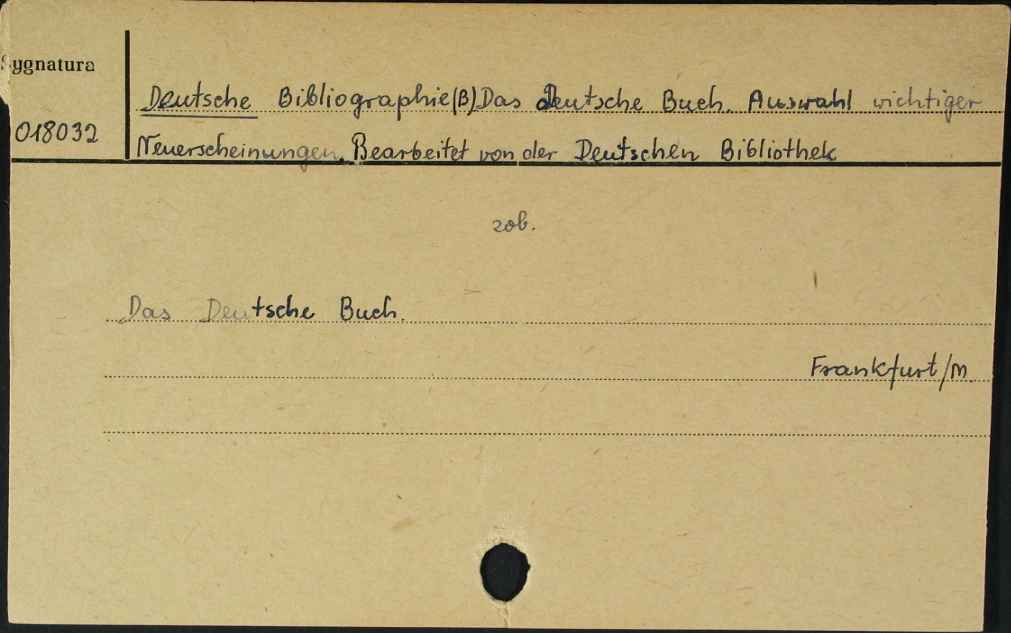 Sygnatura
Deutsche Bibliographie(B) Das deutsche Buch. Auswahl wichtiger
018032
Neuerscheinungen. Bearbeitet von der Deutschen Bibliothek
zob.
Das Deutsche Buch.
Frankfurt/M.